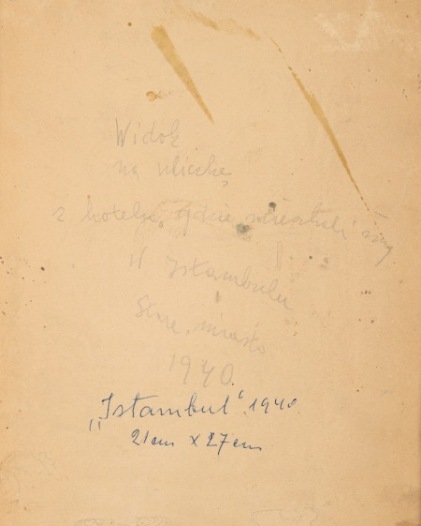 Widok
na uliczkę
z hotelu, gdzie mieszkali śmy
w Istambulu
Stare miasto
1940.
„Istambul" 1940.
21cm x 27cm